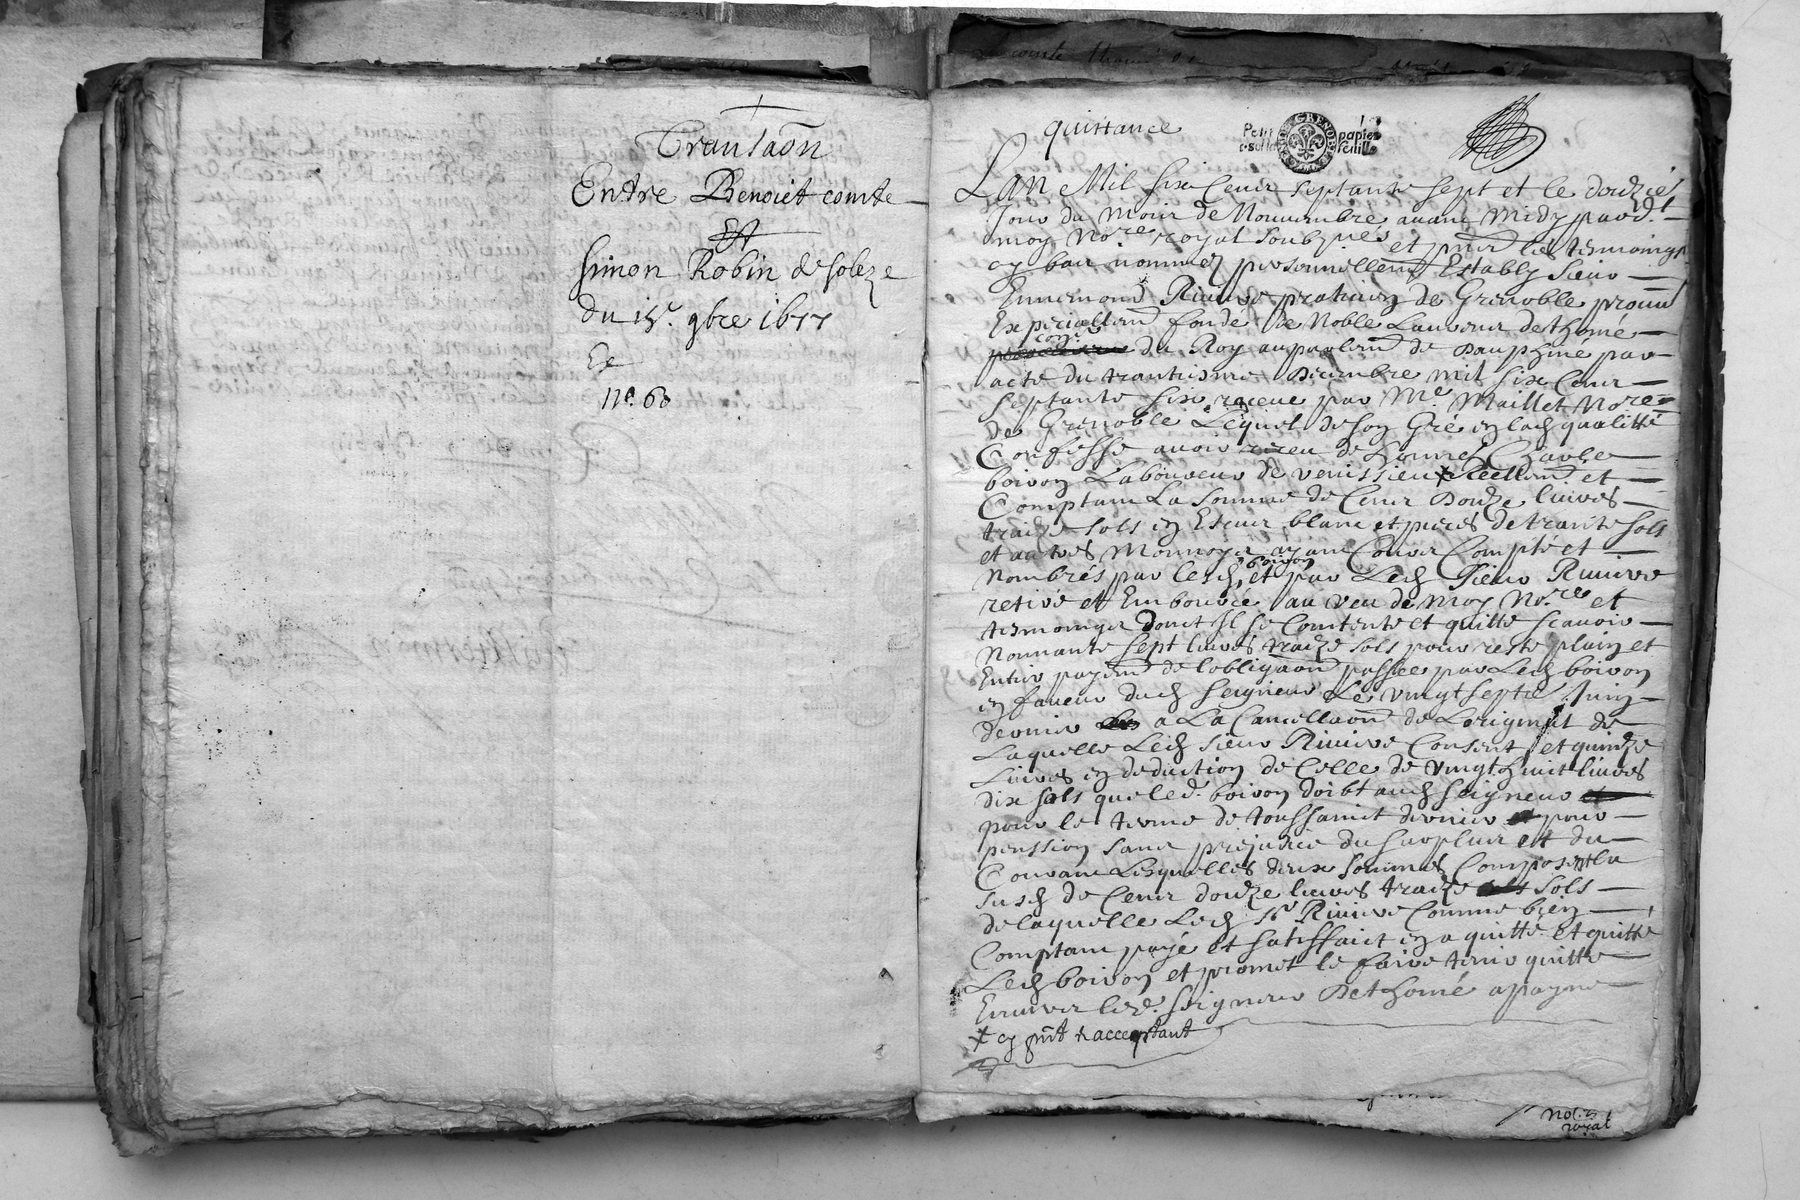 Transaõn
Entre Benoiet comte
Et
Simon Robin de soleze
du 15e. 9bre 1677
Ex
n.o 60
quittance
Petit papier
a sol la feuille
GRENOBLE
Lan Mil six Cens septante sept et le douzies
Jour du Mois de Nouembre auant Midy pard.t
moy No.re royal soubznés et pnts les tesmoings
cy bas nommez personnellem.t Estably sieur
Ennemond Riuiere praticien de Grenoble procur
Expeciallem.t fondé de Noble Laurens dethomé
con.er du Roy au parlem.t de Dauphiné par
acte du trantiesme Decembre Mil six Cens
septante six receue par M.e Maillet No.re
de Grenoble Lequel de son Gré en lad qualitté
Confesse auoir receu de honneste Charle
boiron Laboureur de venissieu + Reellem.t et
Comptant La somme de Cens Douze liures
traize sols en Escus blanc et pieces de trante sols
et autres Monnoyes ayant Cours Compté et
Nombrés par led boiron et par Led Sieur Riuiere
retiré et Emboursée au veu de Moy No.re et
tesmoings dont Il se Contente et quitte scauoir
Nonnante sept liures traize sols pour reste plain et
Entier payem.t de lobligaon passée par Led boiron
en faueur dud Seigneur Le vingt sept.e Juin
dernier a La Cancellaon de Loriginal de
Laquelle Led sieur Riuiere Consent et quinze
Liures en deduction de Celle de vingt huit liures
dix sols que led. boiron doibt aud Seigneur
pour le terme de toussainct dernier pour
penssion sans prejudice du surplus et du
Courant Lesquelles deux sommes Composent la
susd de Cens douze liures traize sols
de laquelle Led S.r Riuiere Comme bien
Comptant payé et satisffaict en a quitté et quitte
Led boiron et promet le faire tenir quitte
Enuers led. seigneur Dethomé a payne
+ cy pnt & acceptant
No.re
royal